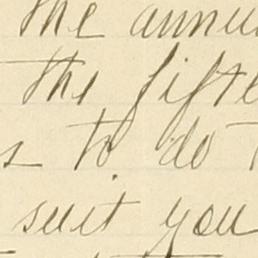 the annu
the fifte
s to do
suit you